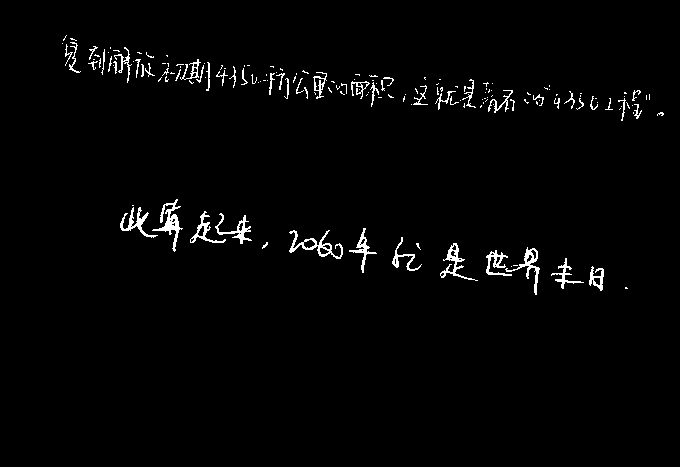 复到解放初期4350平方公里的面积，这就是著名的“4350工程”。
此算起来，2060年 是世界末日.